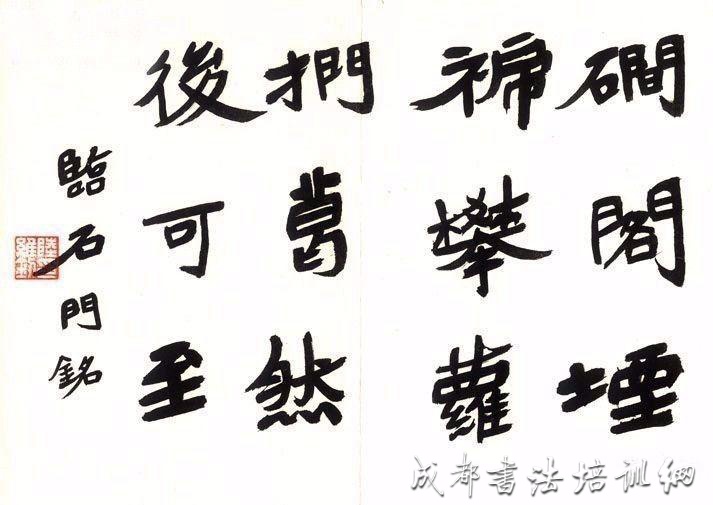 磵閣堙
禘攀蘿
捫葛然
後可至
臨石門銘
成都書法培训網